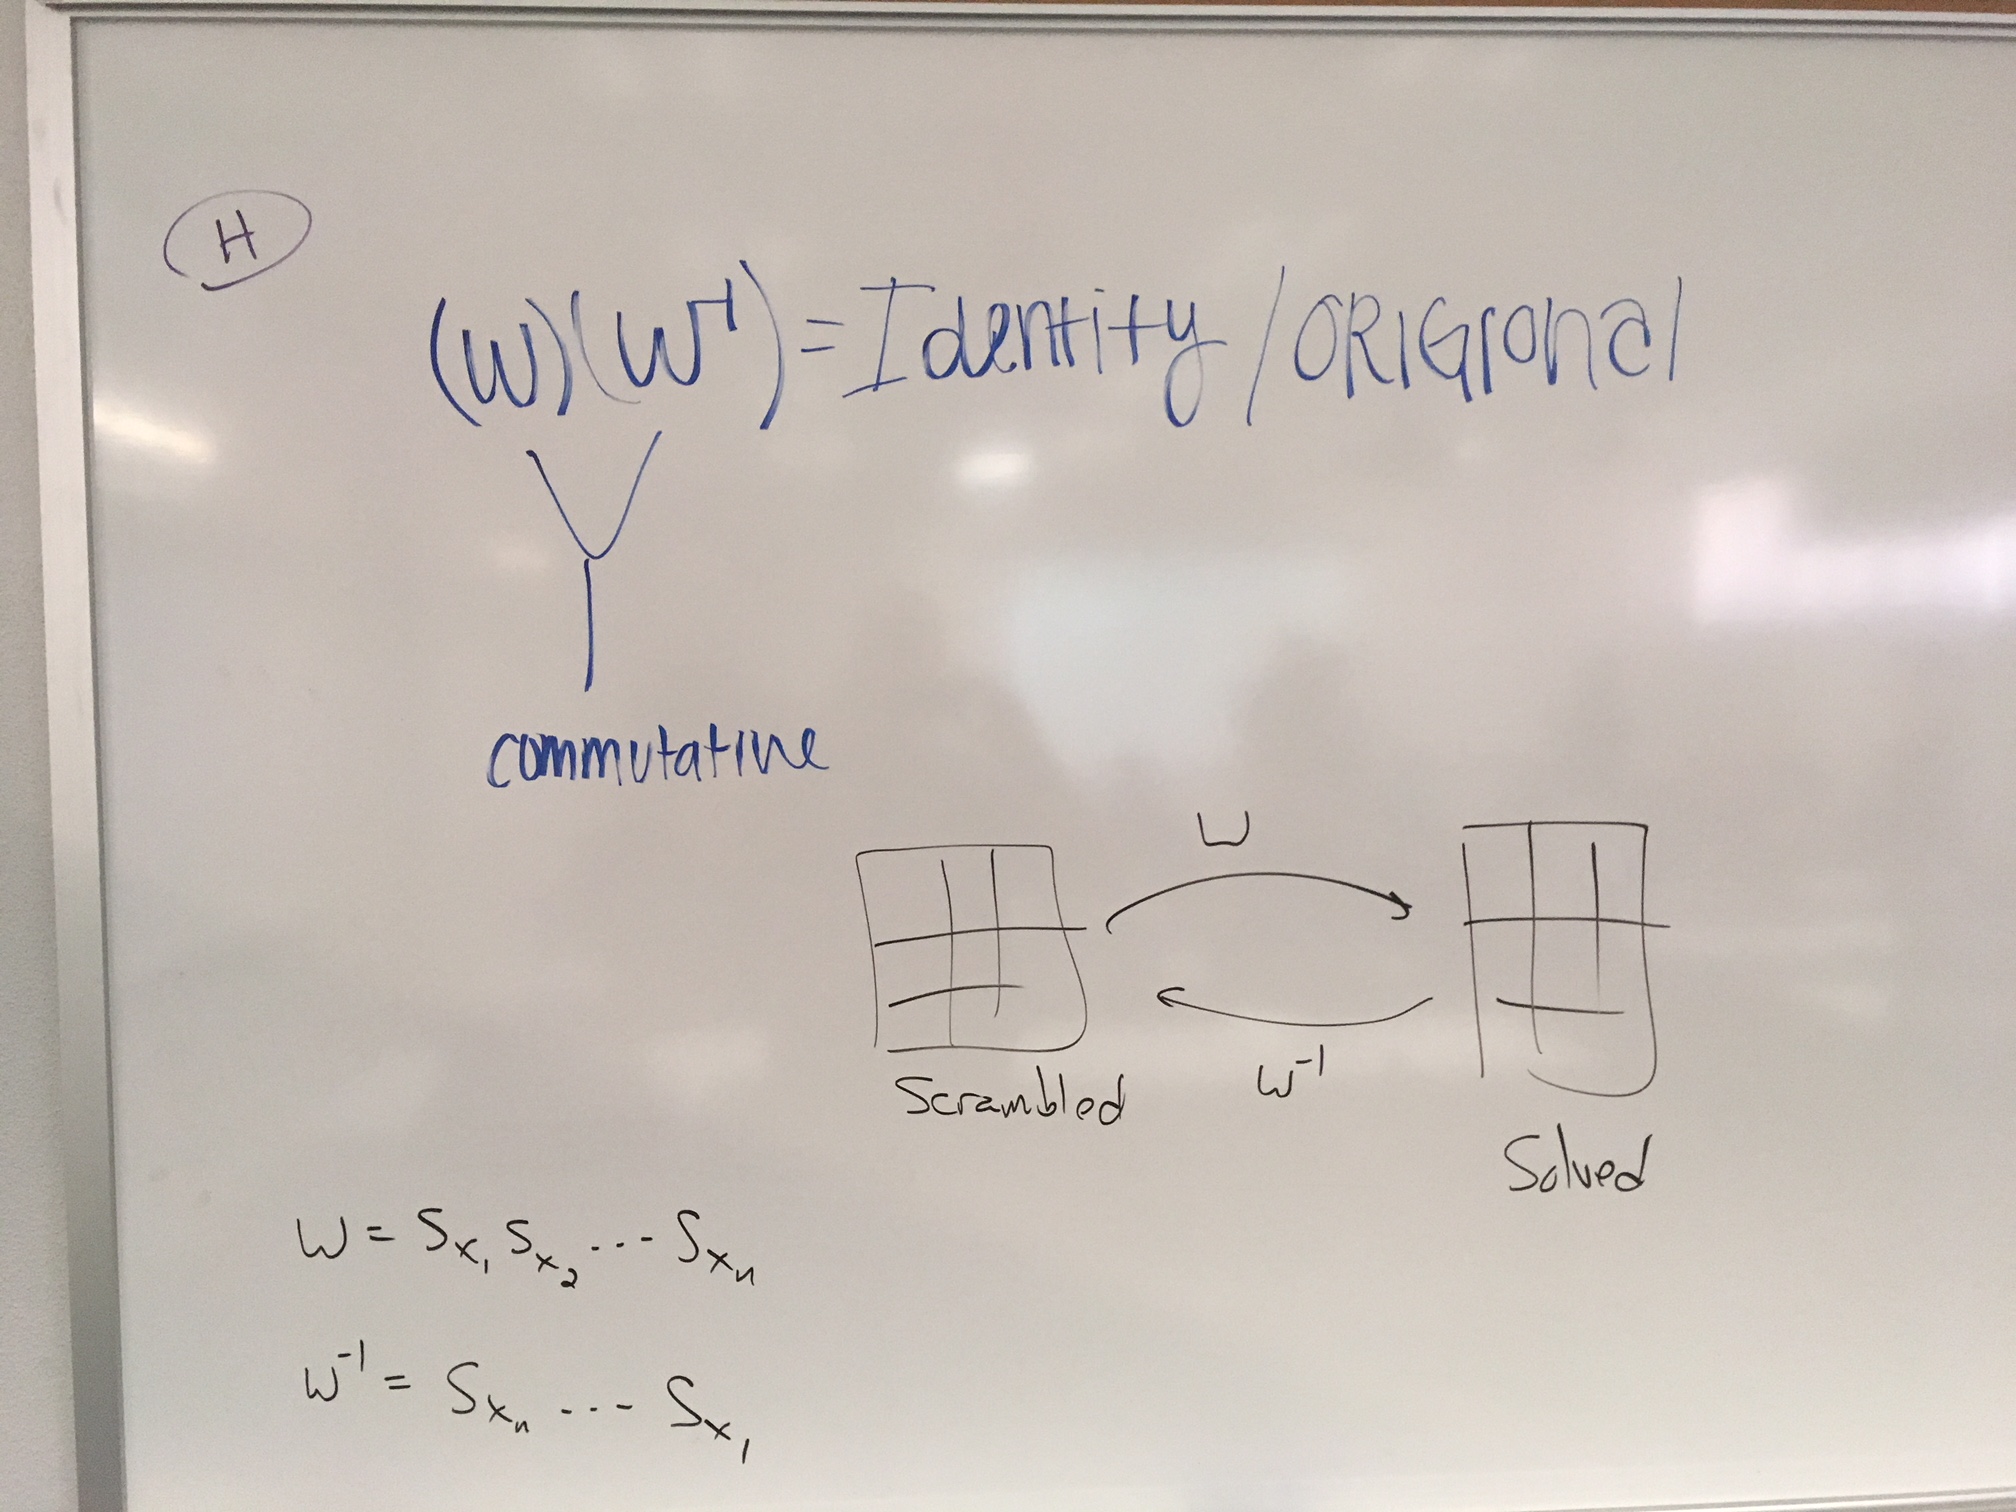 H
(W)(W⁻¹) = Identity / ORIGIONAL
commutative
W
W⁻¹
Scrambled
Solved
W = Sx₁ Sx₂ ... Sxₙ
W⁻¹ = Sxₙ ... Sx₁